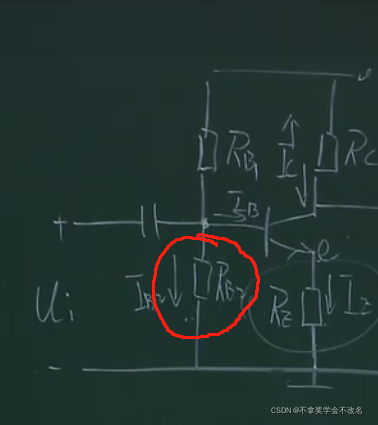 RB1
IC
RC
+
IB
e
IB2
RB2
Ui
RE
IE
-
CSDN @不拿奖学金不改名